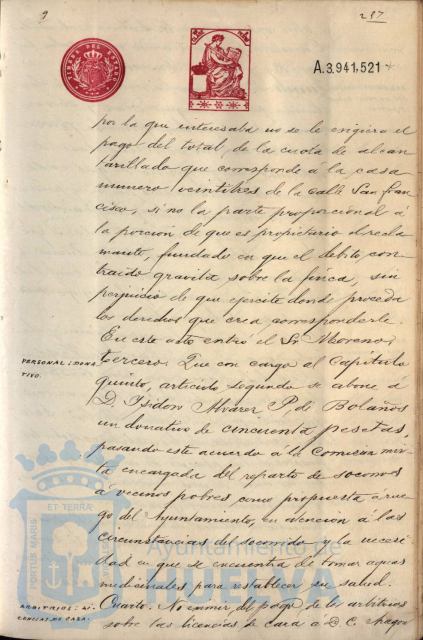 9
287
TIMBRE DEL ESTADO
A.3.941,521
por la que interesaba no se le exigiera el
pago del total de la cuota de alcan
tarillado que corresponde á la casa
numero veintitres de la calle San Fran
cisco, si no la parte proporcional á
la porcion de que es propietario el recla
mante, fundado en que el debito, con
traido gravita sobre la finca, sin
perjuicio de que ejercite donde proceda
los derechos que crea corresponderle.
En este acto entró el Sr. Moreno.
PERSONAL: DONA
TIVO.
Tercero. Que con cargo al Capitulo
quinto, articulo segundo se abone á
D. Isidoro Alvarez P. de Bolaños
un donativo de cincuenta pesetas,
pasando este acuerdo á la Comision mix
ta encargada del reparto de socorros
á vecinos pobres como propuesta á rue
go del Ayuntamiento, en atencion á las
circunstancias del socorrido y la necesi
dad en que se encuentra de tomar aguas
medicinales para restablecer su salud.
ARBITRIOS: LI-
CENCIAS DE CAZA.
Cuarto. No eximir del pago de los arbitrios
sobre las licencias de caza á D. C.
PORTUS MARIS
ET TERRAE
Ayuntamiento de
HUELVA